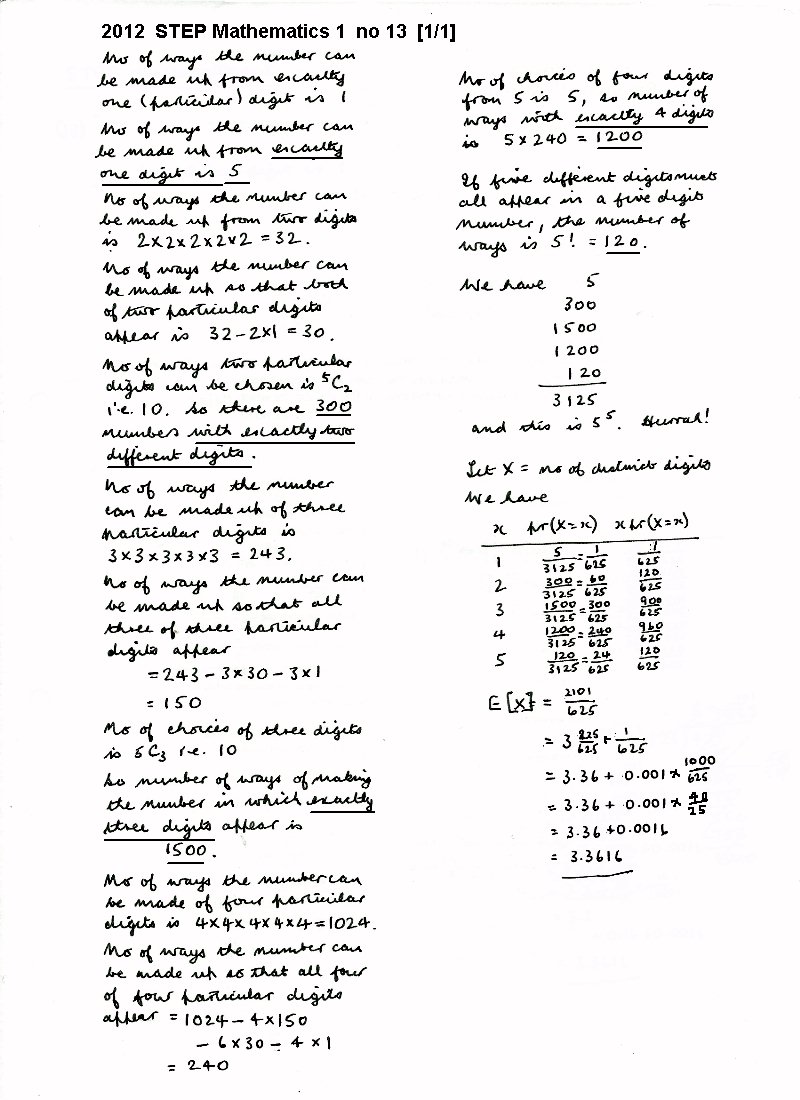 2012 STEP Mathematics 1 no 13 [1/1]
No of ways the number can
be made up from exactly
one (particular) digit is 1
No of ways the number can
be made up from exactly
one digit is 5
No of ways the number can
be made up from two digits
is 2×2×2×2×2 = 32.
No of ways the number can
be made up so that both
of two particular digits
appear is 32 - 2×1 = 30.
No of ways two particular
digits can be chosen is ⁵C₂
i.e. 10. So there are 300
numbers with exactly two
different digits.
No of ways the number
can be made up of three
particular digits is
3×3×3×3×3 = 243.
No of ways the number can
be made up so that all
three of three particular
digits appear
= 243 - 3×30 - 3×1
= 150
No of choices of three digits
is 5C₃ i.e. 10
So number of ways of making
the number in which exactly
three digits appear is
1500.
No of ways the number can
be made of four particular
digits is 4×4×4×4×4 = 1024.
No of ways the number can
be made up so that all four
of four particular digits
appear = 1024 - 4×150
- 6×30 - 4×1
= 240
No of choices of four digits
from 5 is 5, so number of
ways with exactly 4 digits
is 5×240 = 1200
If five different digits must
all appear in a five digit
number, the number of
ways is 5! = 120.
We have 5
300
1500
1200
120
3125
and this is 5⁵. Hurrah!
Let X = no of distinct digits
We have
x pr(X=x) x pr(X=x)
1 5/3125 = 1/625 1/625
2 300/3125 = 60/625 120/625
3 1500/3125 = 300/625 900/625
4 1200/3125 = 240/625 960/625
5 120/3125 = 24/625 120/625
E[X] = 2101/625
= 3 225/625 + 1/625
= 3.36 + 0.001 × 1000/625
= 3.36 + 0.001 × 40/25
= 3.36 + 0.0016
= 3.3616